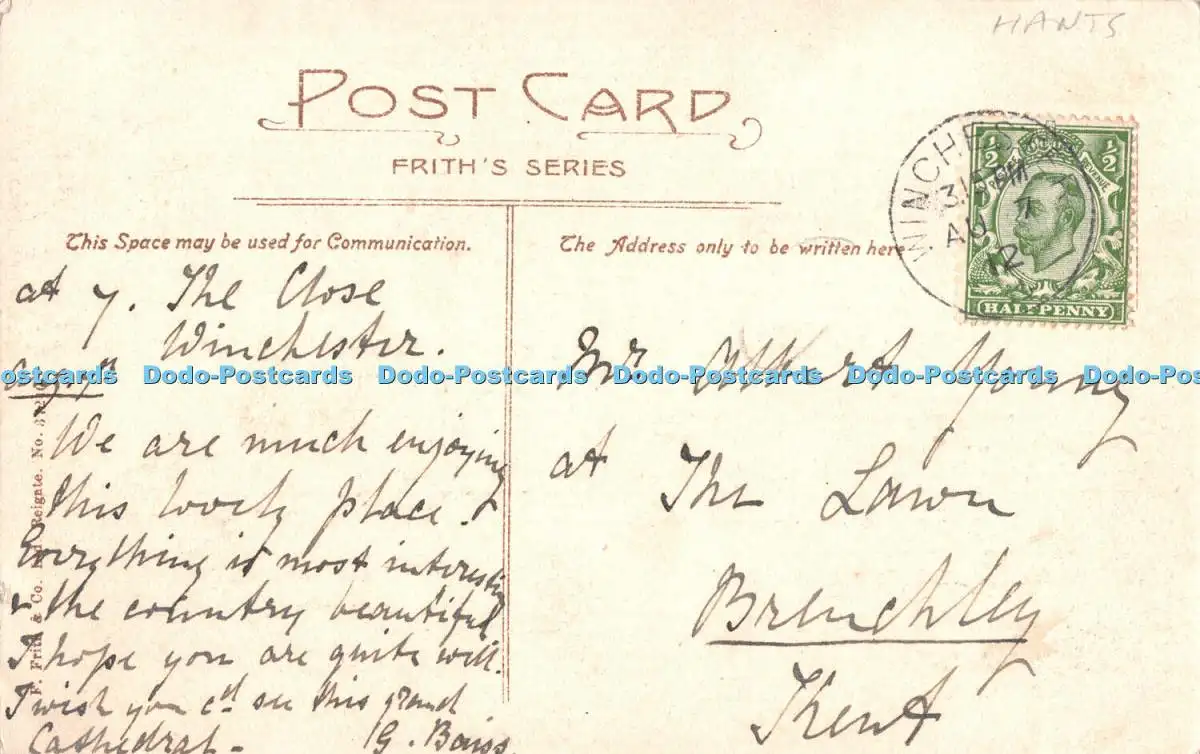 HANTS
POST CARD
FRITH'S SERIES
This Space may be used for Communication.
The Address only to be written here
WINCHESTER
3.15 PM
AU 7
12
½ ½
POSTAGE REVENUE
HALFPENNY
at 7. The Close
Winchester.
Aug 7th
We are much enjoying
this lovely place. &
Everything is most interesting
& the country beautiful
I hope you are quite well.
I wish you cd see this grand
Cathedral -
G.
Mr Albert Young
at The Lawn
Brenchley
Kent
F. Frith & Co. Reigate. No. 3
ostcards Dodo-Postcards Dodo-Postcards Dodo-Postcards Dodo-Postcards Dodo-Po